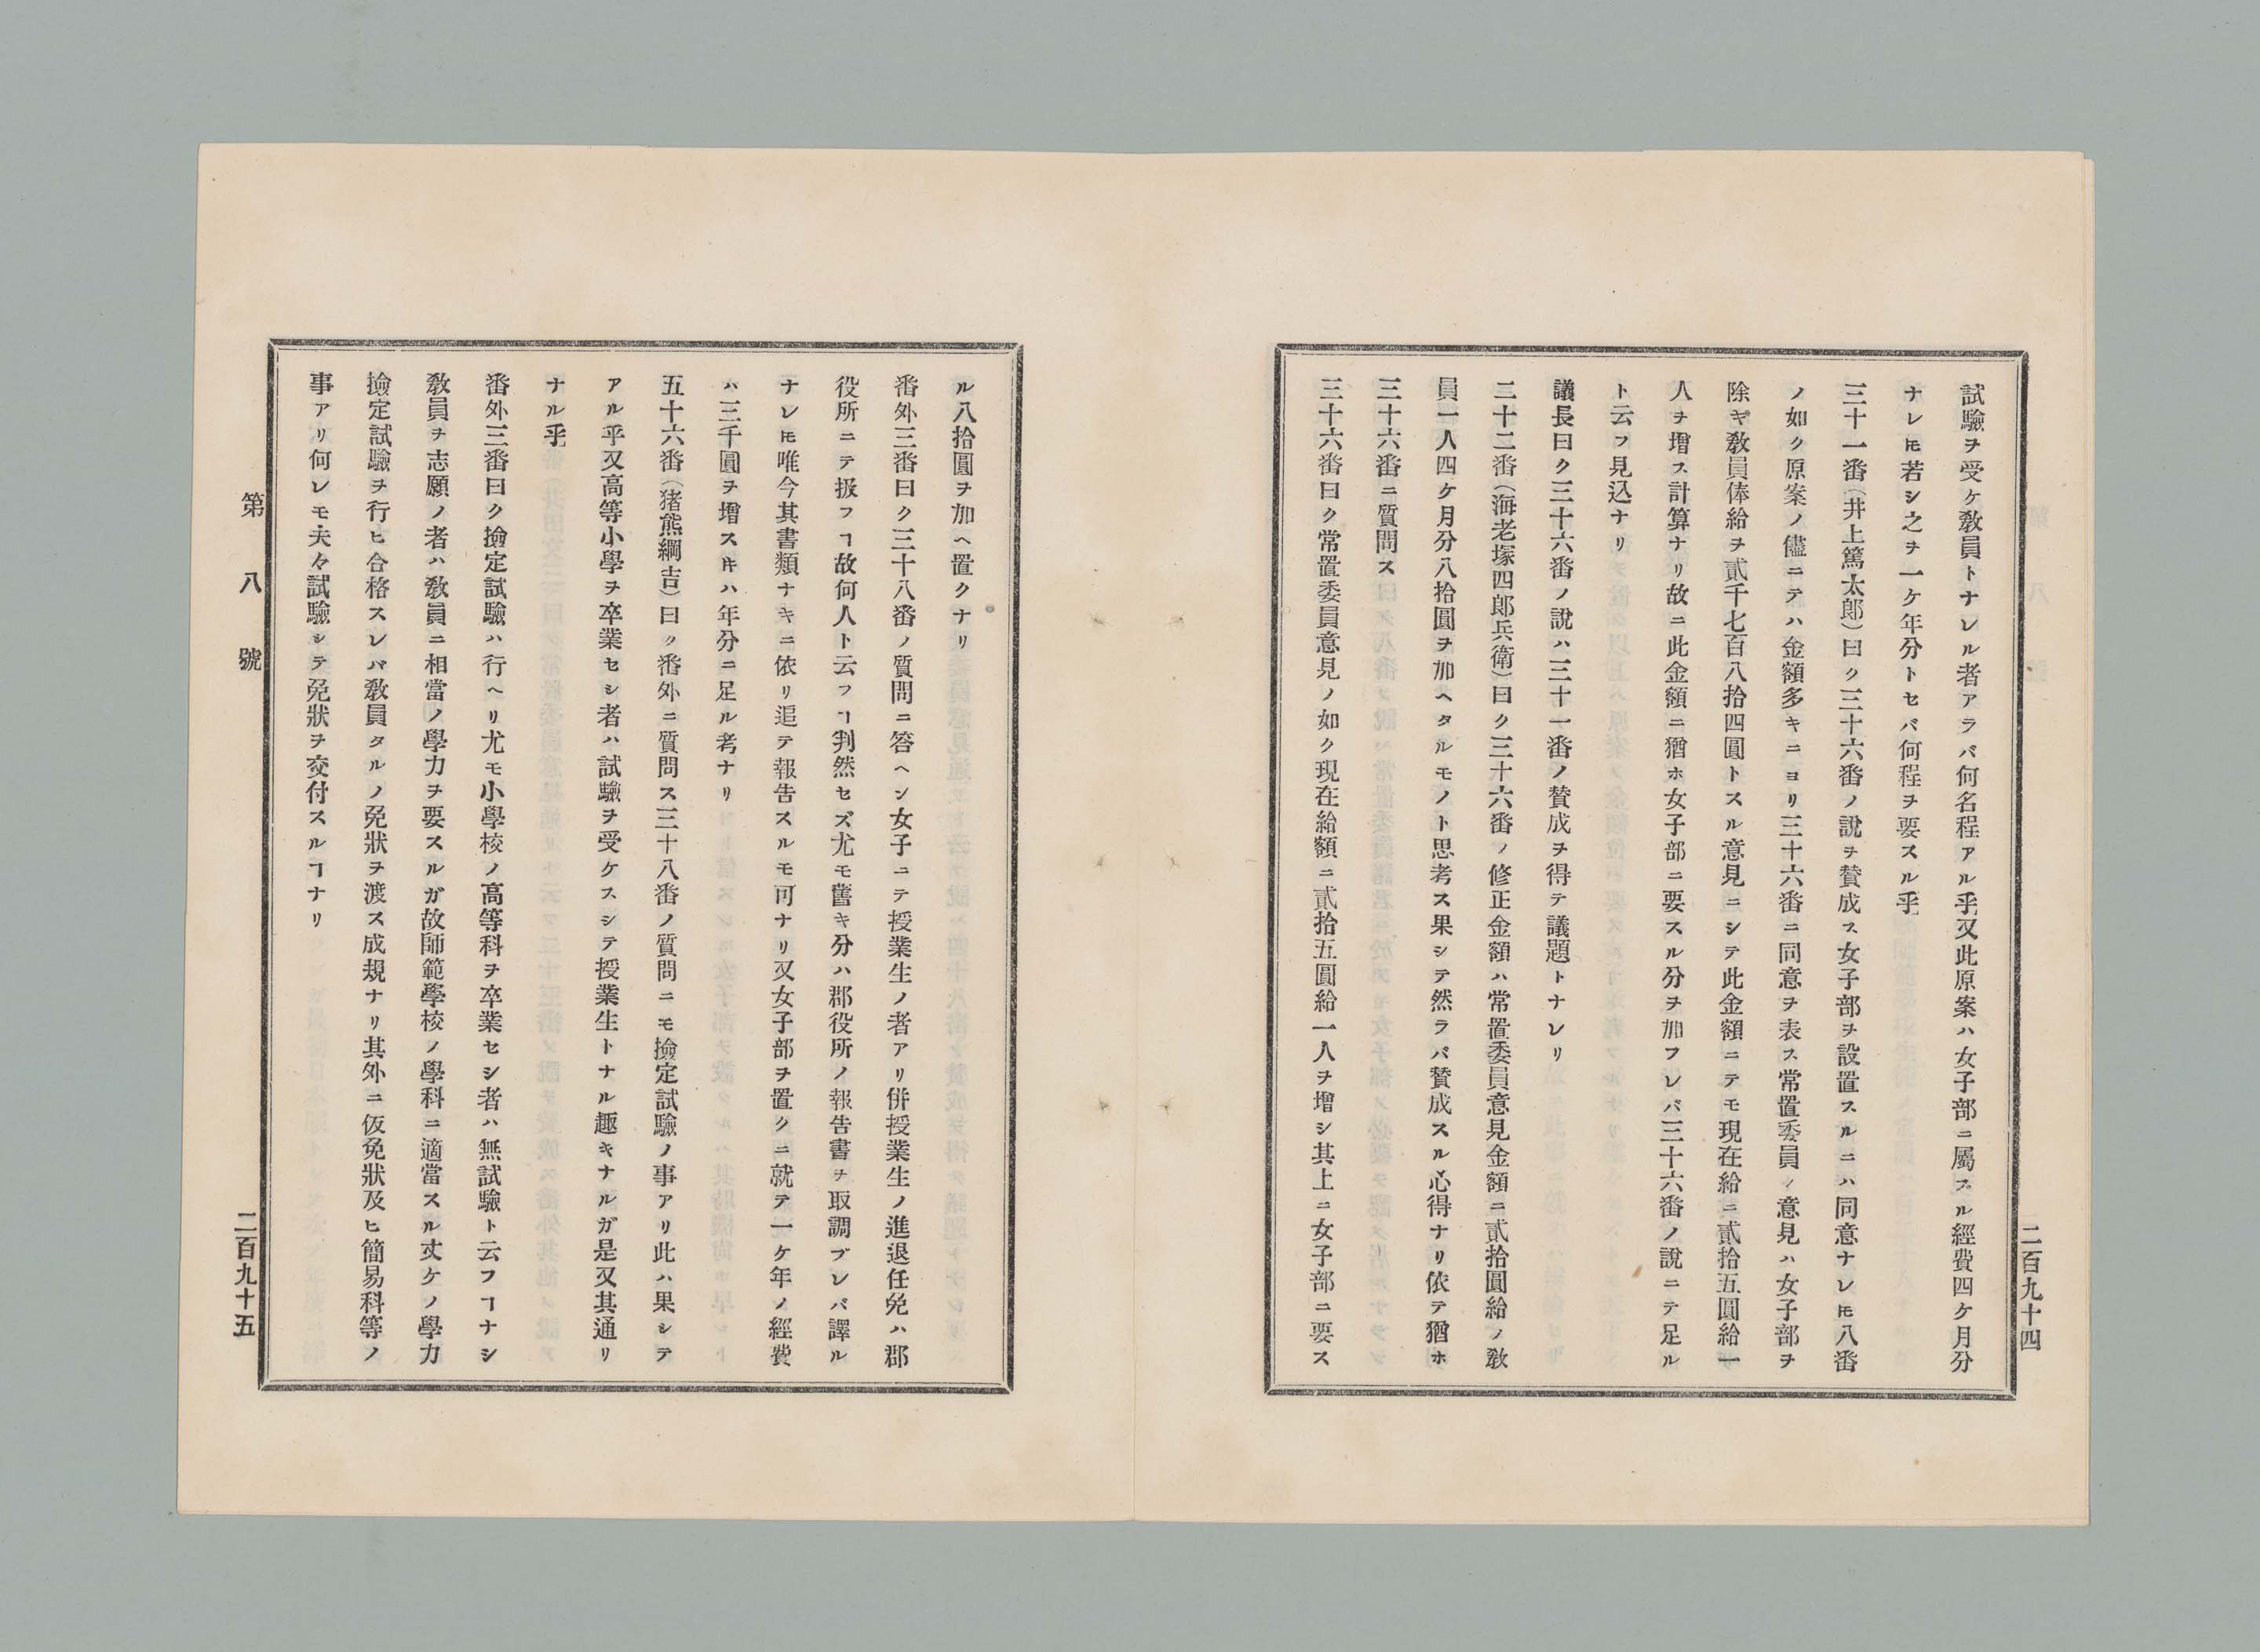 試驗ヲ受ケ敎員トナレル者アラバ何名程アル乎又此原案ハ女子部ニ屬スル經費四ケ月分
ナレ𪜈若シ之ヲ一ケ年分トセバ何程ヲ要スル乎
三十一番(井上篤太郎)曰ク三十六番ノ說ヲ賛成ス女子部ヲ設置スルニハ同意ナレ𪜈八番
ノ如ク原案ノ儘ニテハ金額多キニヨリ三十六番ニ同意ヲ表ス常置委員ノ意見ハ女子部ヲ
除ギ敎員俸給ヲ貳千七百八拾四圓トスル意見ニシテ此金額ニテモ現在給ニ貳拾五圓給一
人ヲ增ス計算ナリ故ニ此金額ニ猶ホ女子部ニ要スル分ヲ加フレバ三十六番ノ說ニテ足ル
ト云フ見込ナリ
議長曰ク三十六番ノ說ハ三十一番ノ賛成ヲ得テ議題トナレリ
二十二番(海老塚四郎兵衛)曰ク三十六番ノ修正金額ハ常置委員意見金額ニ貳拾圓給ノ敎
員一人四ケ月分八拾圓ヲ加ヘタルモノト思考ス果シテ然ラバ賛成スル心得ナリ依テ猶ホ
三十六番ニ質問ス
三十六番曰ク常置委員意見ノ如ク現在給額ニ貳拾五圓給一人ヲ增シ其上ニ女子部ニ要ス
二百九十四
ル八拾圓ヲ加ヘ置クナリ
番外三番曰ク三十八番ノ質問ニ答ヘン女子ニテ授業生ノ者アリ併授業生ノ進退任免ハ郡
役所ニテ扱フヿ故何人ト云フヿ判然セズ尤モ舊キ分ハ郡役所ノ報告書ヲ取調ブレバ譯ル
ナレ𪜈唯今其書類ナキニ依リ追テ報告スルモ可ナリ又女子部ヲ置クニ就テ一ケ年ノ經費
ハ三千圓ヲ增ス𪜈ハ年分ニ足ル考ナリ
五十六番(猪熊綱吉)曰ク番外ニ質問ス三十八番ノ質問ニモ撿定試驗ノ事アリ此ハ果シテ
アル乎又高等小學ヲ卒業セシ者ハ試驗ヲ受ケスシテ授業生トナル趣キナルガ是又其通リ
ナル乎
番外三番曰ク撿定試驗ハ行ヘリ尤モ小學校ノ高等科ヲ卒業セシ者ハ無試驗ト云フヿナシ
敎員ヲ志願ノ者ハ敎員ニ相當ノ學力ヲ要スルガ故師範學校ノ學科ニ適當スル丈ケノ學力
撿定試驗ヲ行ヒ合格スレバ敎員タルノ免狀ヲ渡ス成規ナリ其外ニ仮免狀及ヒ簡易科等ノ
事アリ何レモ夫々試驗シテ免狀ヲ交付スルヿナリ
第八號
二百九十五